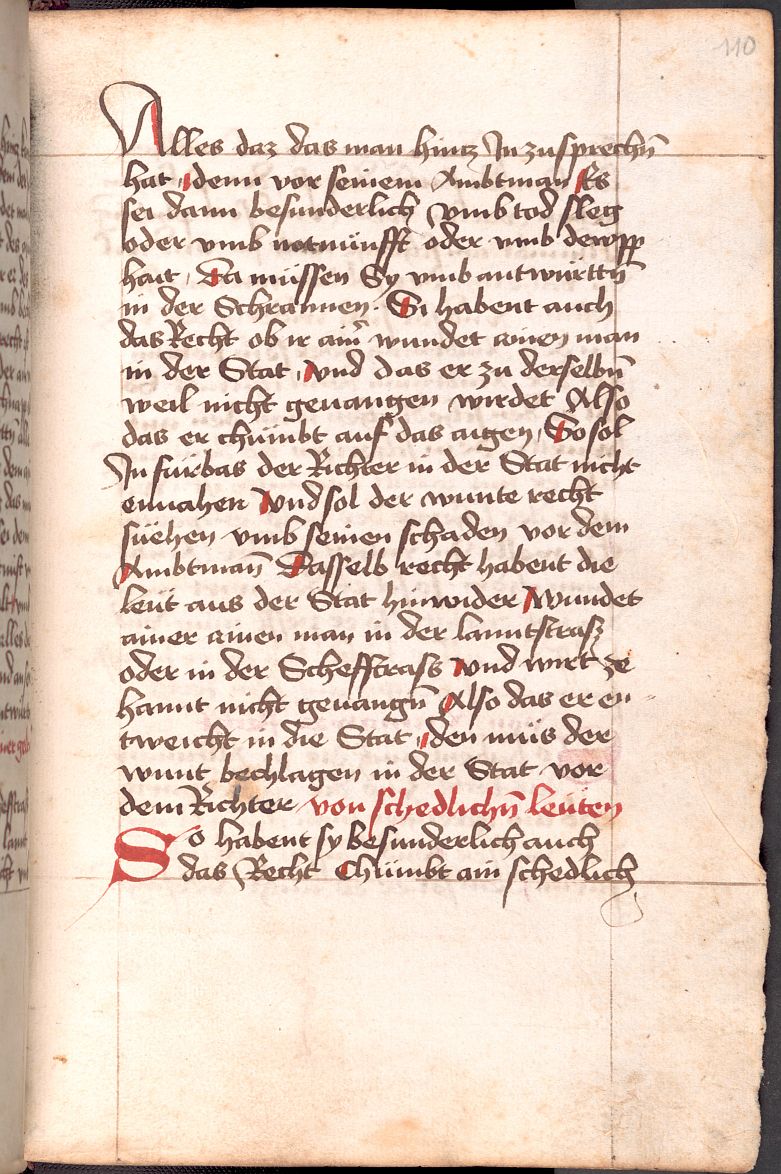 110
Alles daz das man hincz In zusprechn̄
hat, denn vor seinem Ambtman Es
sei dann besunderlich vmb tod sleg
oder vmb notnünfft oder vmb dewpp
hait, Da müssen Sy vmb antwürttn̄
in der Schrannen. Si habent auch
das Recht ob ir ain̄ wundet ainen man
in der Stat, vnd das er zu derselbn̄
weil nicht geuangen wirdet Also
das er chümbt auf das aigen, So sol
In fürbas der Richter in der Stat nicht
ennahen vnd sol der wunte recht
süehen vmb seinen schaden vor dem
Ambtman̄ Dasselb recht habent die
leüt aus der Stat hinwider, Wundet
ainer ainen man in der lanntstrasz
oder in der Scheffstrass vnd wirt ze
hannt nicht geuangn̄ Also das er en
tweicht in die Stat, den müs der
wunt bechlagen in der Stat vor
dem Richter von schedlichn̄ leüten
So habent sy besunderlich auch
das Recht Chümbt ain schedlich